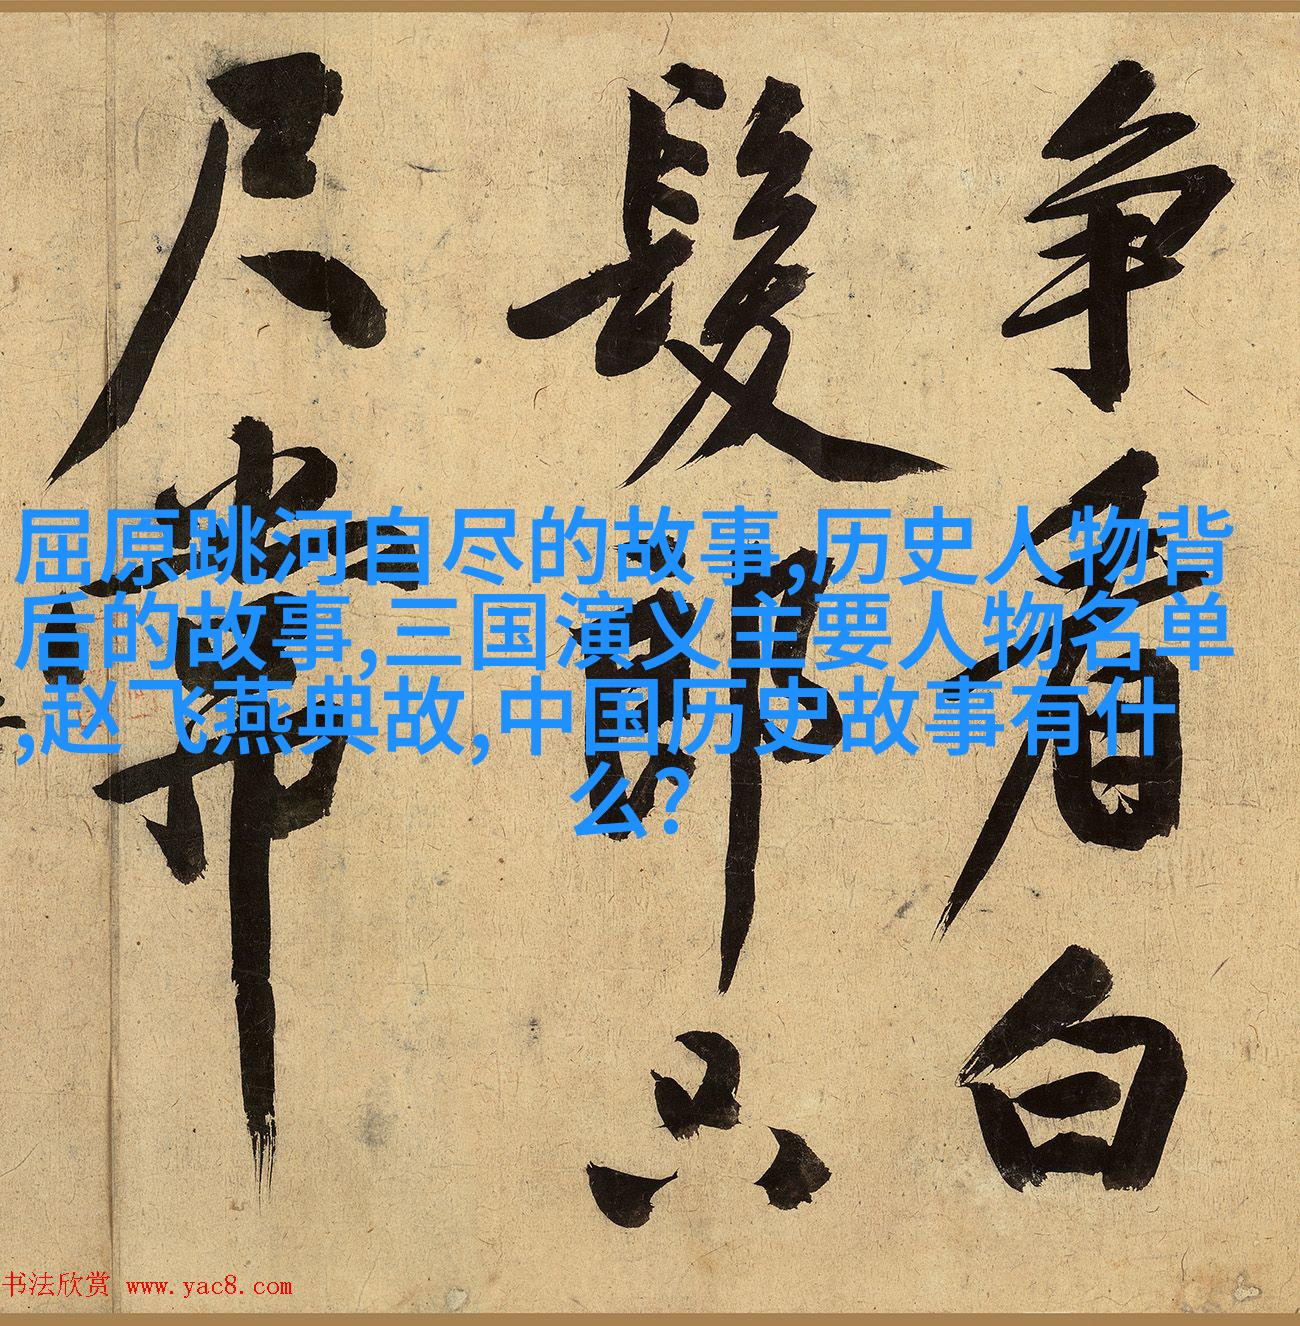 争看白
髮郎只
尺常
屈原跳河自尽的故事,历史人物背
后的故事,三国演义主要人物名单
,赵飞燕典故,中国历史故事有什
么?
书法欣赏 www.yac8.com